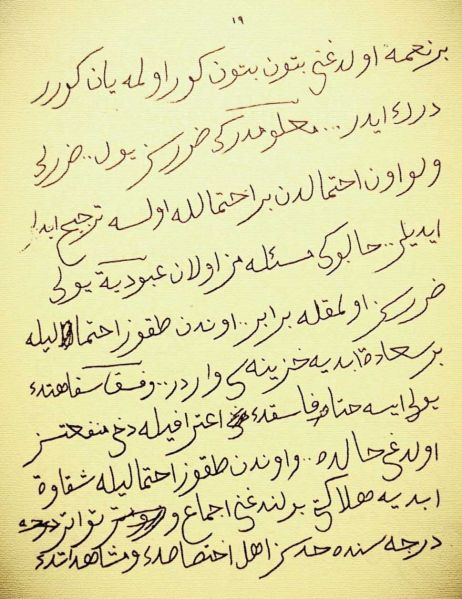 ١٩
بر نعمه اولدغنى بتون بتون كور اولمه يان كورر
درك ايدر... معلومدركه ضررسز يول.. ضررلى
ولو اون احتمالدن بر احتمالله اولسه ترجيح
ايديلر.. حالبوكه مسئله مز اولان عبوديت يولى
ضررسز اولمقله برابر.. اوندن طقوز احتمال ايله
بر سعادة ابديه خزينه سى واردر.. وفسق سفاهتك
يولى ايسه حتا فاسقك اعترافيله دخى منفعتسز
اولدغى حالده.. و اوندن طقوز احتمال ايله شقاوة
ابديه هلاكتى بولندغنى اجماع و تواتر
درجه سنده حدسز اهل اختصاصك و مشاهداتك